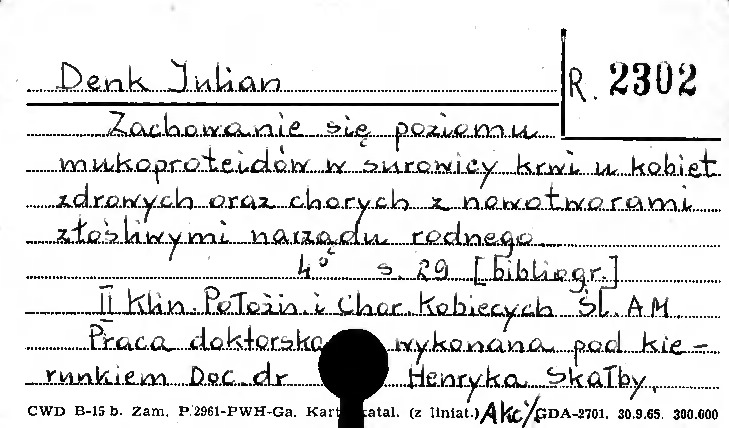 Denk Julian
R. 2302
Zachowanie się poziomu
mukoproteidów w surowicy krwi u kobiet
zdrowych oraz chorych z nowotworami
złośliwymi narządu rodnego
4° s. 29 [bibliogr.]
II Klin. Położn. i Chor. Kobiecych Śl. AM.
Praca doktorska wykonana pod kie-
runkiem Doc. dr Henryka Skałby.
CWD B-15 b. Zam. P.2961-PWH-Ga. Kart. katal. (z liniat.) Akc/GDA-2701. 30.9.65. 300.000